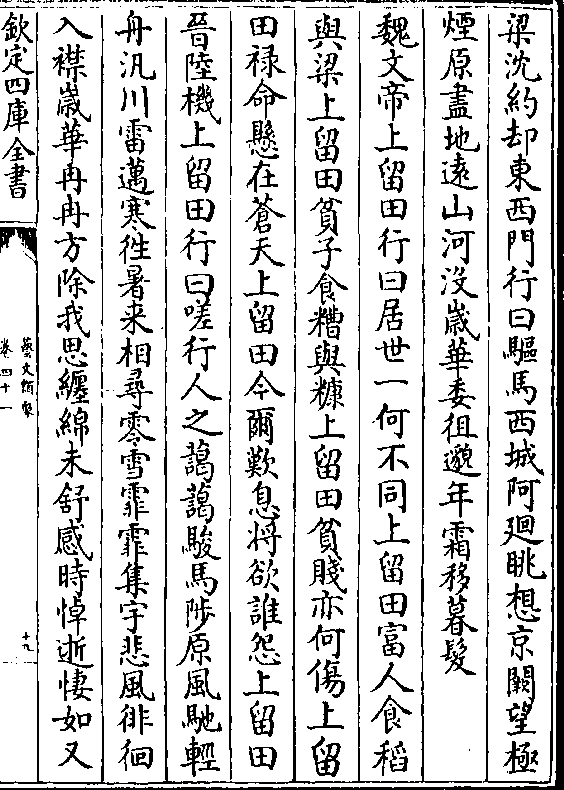 梁沈約却東西門行曰驅馬西城阿迴眺想京闕望極
煙原盡地遠山河没歲華委徂邈年霜移暮髮
魏文帝上留田行曰居世一何不同上留田富人食稻
與梁上留田貧子食糟與糠上留田貧賤亦何傷上留
田禄命懸在蒼天上留田今爾歎息将欲誰怨上留田
晉陸機上留田行曰嗟行人之藹藹駿馬陟原風馳輕
舟汎川雷邁寒徃暑来相尋零雪霏霏集宇悲風徘徊
入襟歲華冉冉方除我思纒綿未舒感時悼逝悽如又
欽定四庫全書
藝文類聚
卷四十一
十九